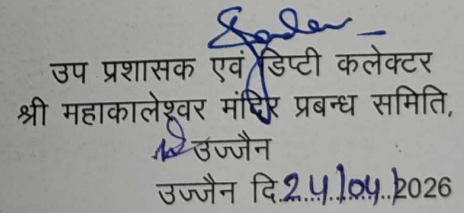 उप प्रशासक एवं डिप्टी कलेक्टर
श्री महाकालेश्वर मंदिर प्रबन्ध समिति,
उज्जैन
उज्जैन दि.24/04/2026